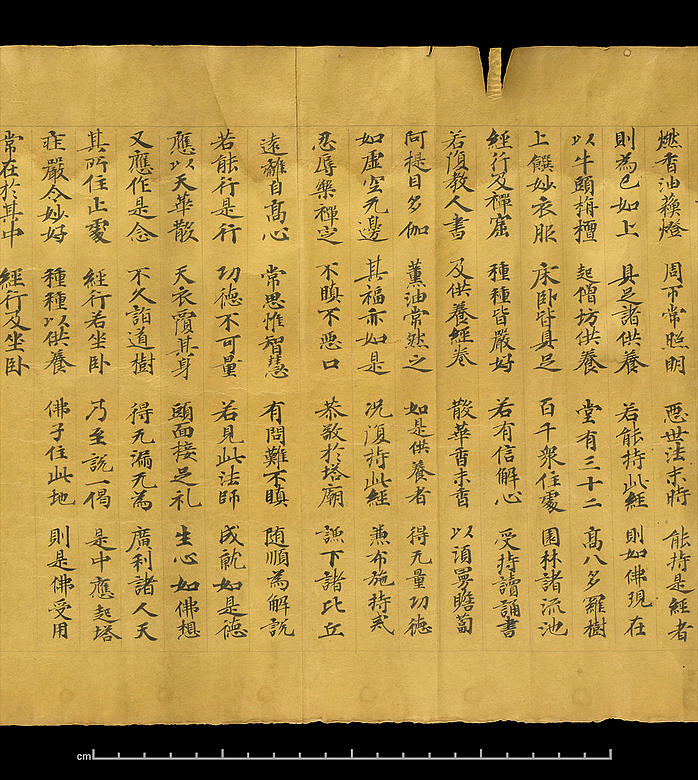 燃香油蘓燈 周帀常照明 惡世法末時 能持是經者
則為已如上 具足諸供養 若能持此經 則如佛現在
以牛頭栴檀 起僧坊供養 堂有三十二 髙八多羅樹
上饌妙衣服 床卧皆具足 百千衆住處 園林諸流池
經行及禪窟 種種皆嚴好 若有信解心 受持讀誦書
若復教人書 及供養經卷 散華香末香 以須曼瞻蔔
阿提目多伽 薰油常然之 如是供養者 得无量功德
如虛空无邊 其福亦如是 况復持此經 兼布施持戒
忍辱樂禪定 不瞋不惡口 恭敬於塔廟 謙下諸比丘
遠離自髙心 常思惟智慧 有問難不瞋 随順為解說
若能行是行 功德不可量 若見此法師 成就如是德
應以天華散 天衣覆其身 頭面接足礼 生心如佛想
又應作是念 不久詣道樹 得无漏无為 廣利諸人天
其所住止處 經行若坐卧 乃至說一偈 是中應起塔
莊嚴令妙好 種種以供養 佛子住此地 則是佛受用
常在於其中 經行及坐卧
cm